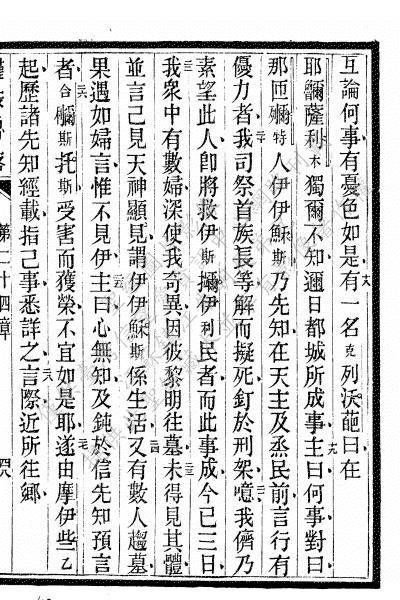 互論何事有憂色如是有一名克列沃葩曰在
耶爾薩利木獨爾不知邇日都城所成事主曰何事對曰
那匝爾特人伊伊穌斯乃先知在天主及烝民前言行有
優力者我司祭首族長等解而擬死釘於刑架噫我儕乃
素望此人卽將救伊斯拉伊利民者而此事成今已三日
我衆中有數婦深使我奇異因彼黎明往墓未得見其體
並言己見天神顯見謂伊伊穌斯係生活又有數人趨墓
果遇如婦言惟不見伊主曰心無知及鈍於信先知預言
者合爾斯托斯受害而獲榮不宜如是耶遂由摩伊些乙
起歷諸先知經載指己事悉詳之言際近所往鄉
第二十四章